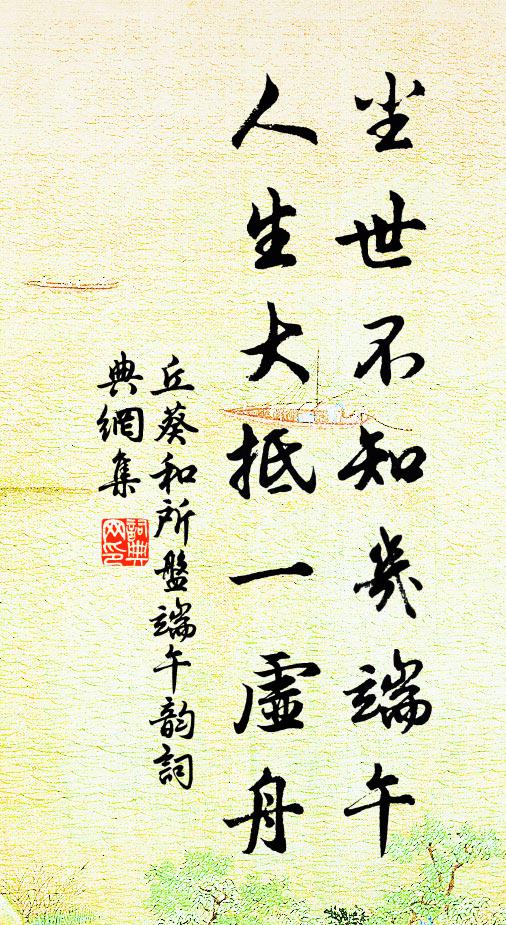 尘世不知幾端午
人生大抵一虛舟
丘葵和所盤端午韵詞
典網集
詞典
网印